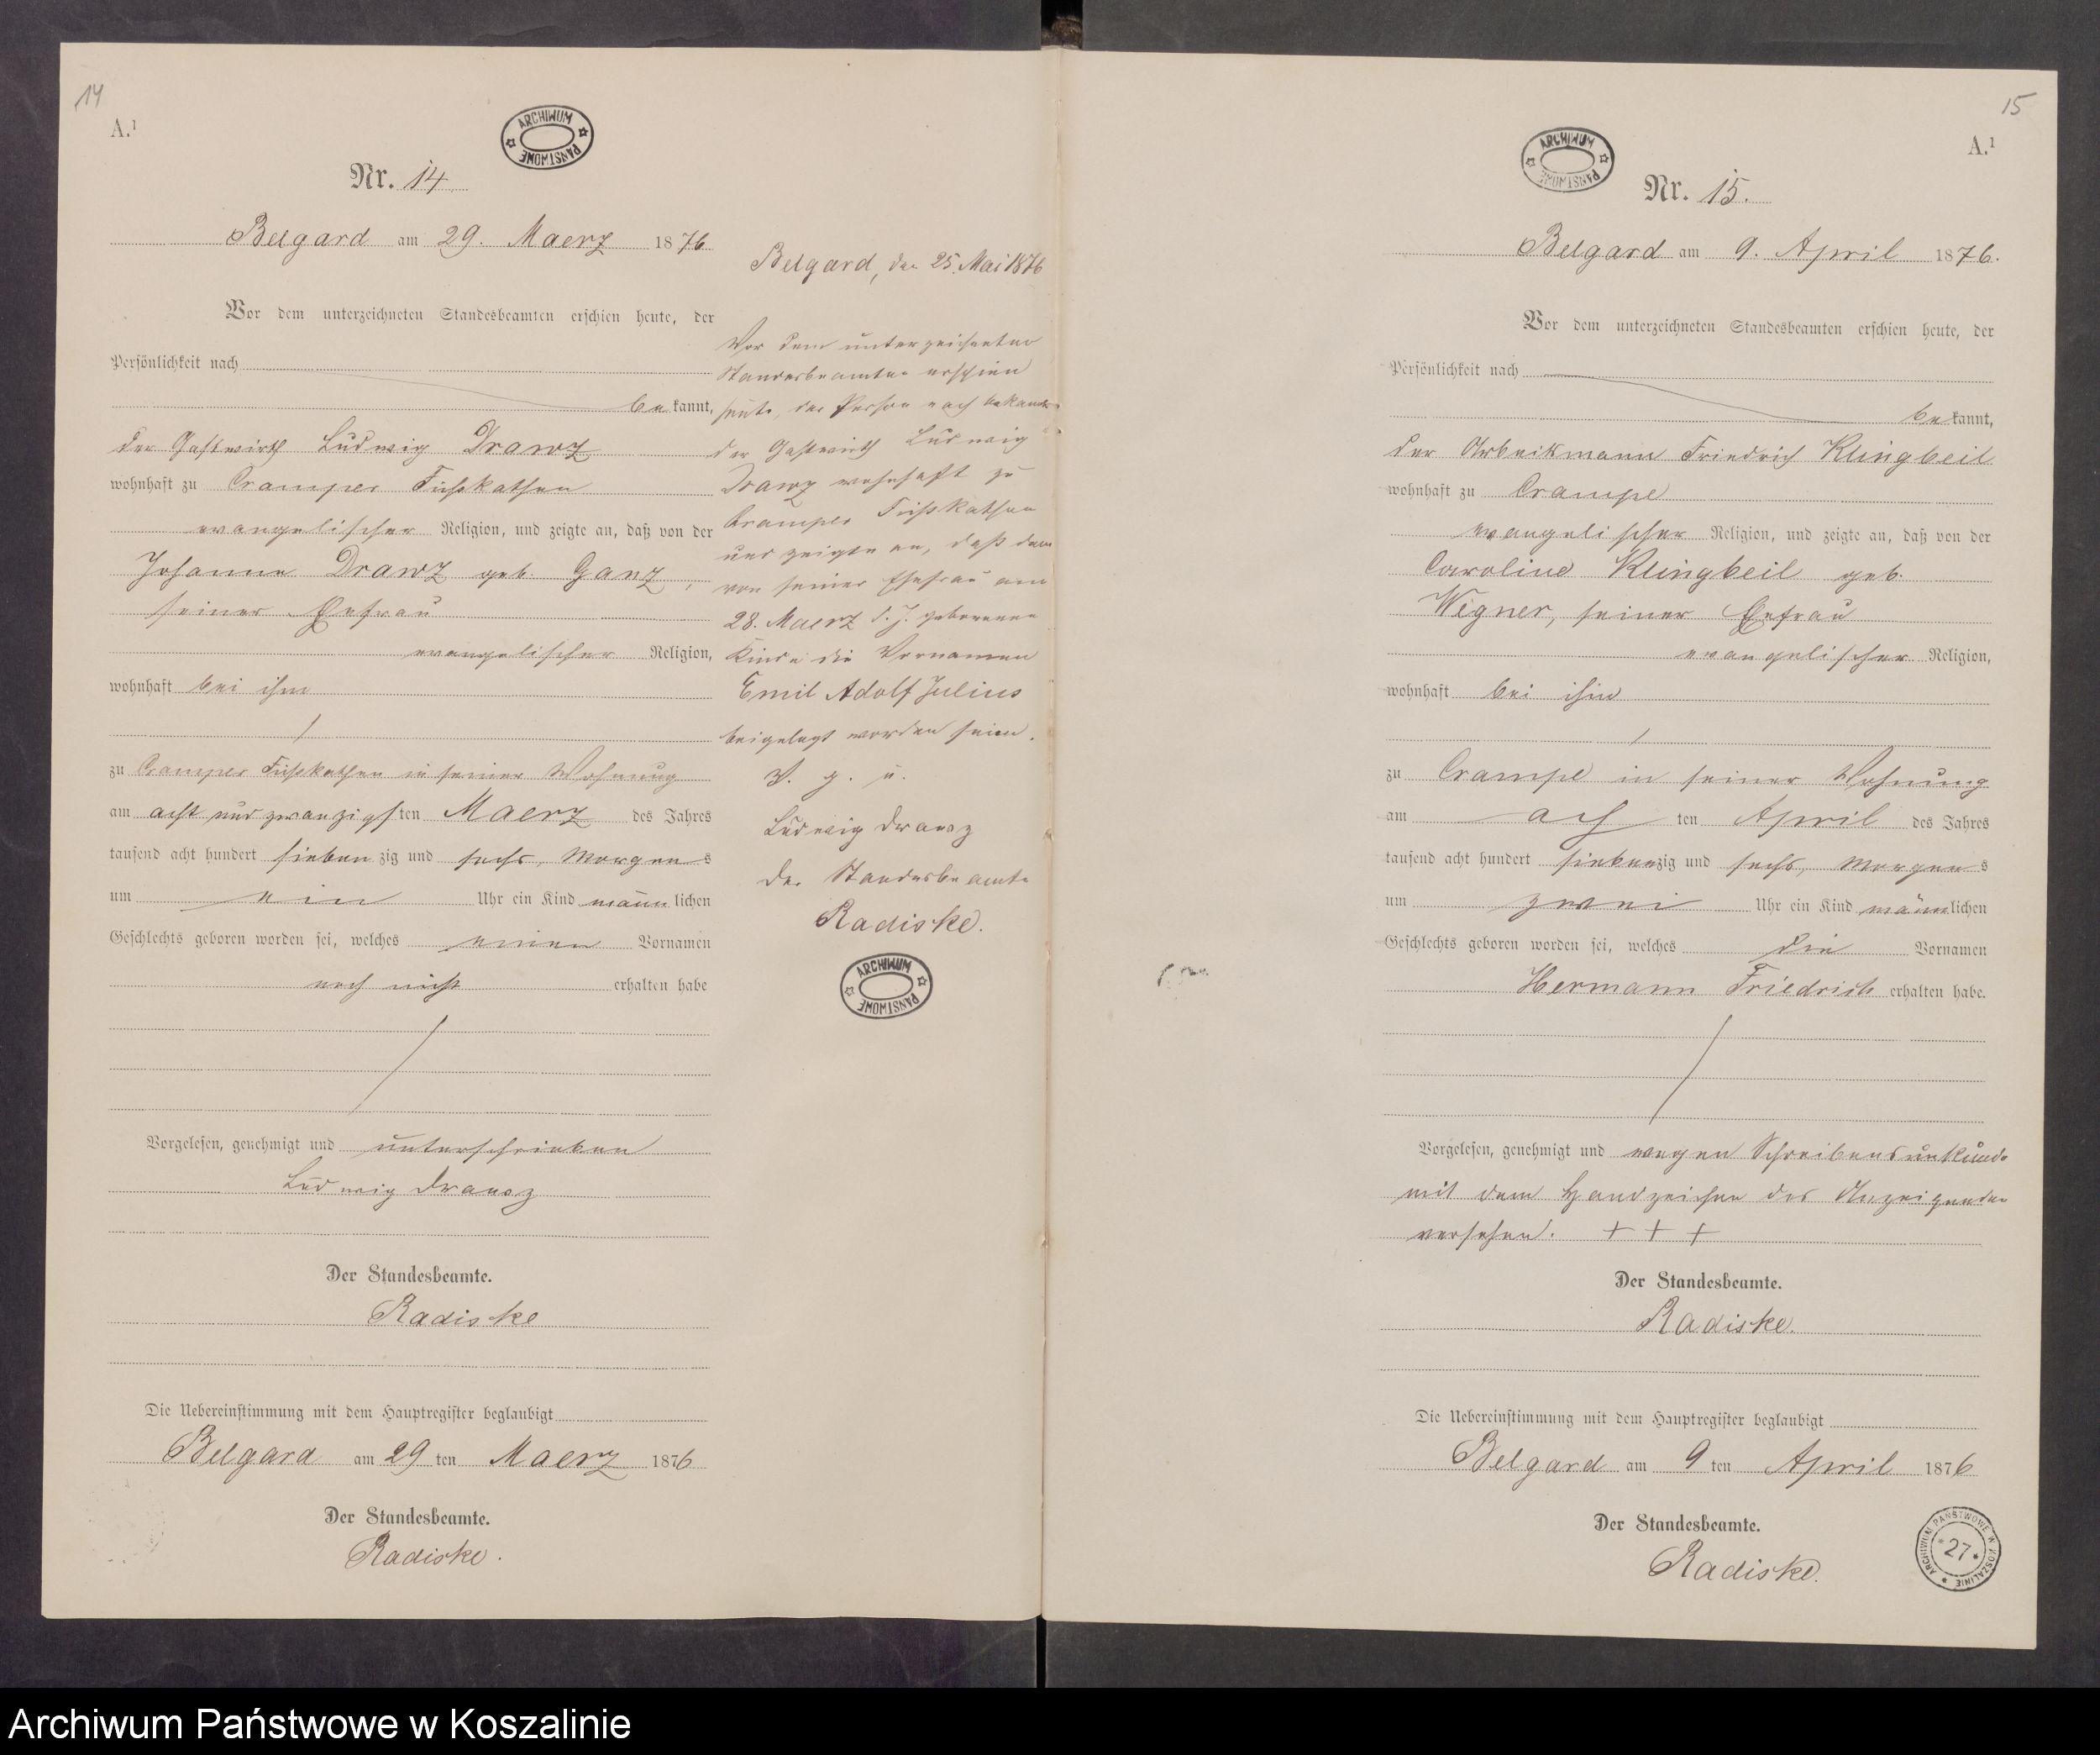 14
A.¹
ARCHIWUM PAŃSTWOWE
Nr. 14.
Belgard am 29. Maerz 1876
Vor dem unterzeichneten Standesbeamten erschien heute, der
Persönlichkeit nach
bekannt,
der Gastwirth Ludwig Drawz
wohnhaft zu Cramper Fischkathen
evangelischer Religion, und zeigte an, daß von der
Johanne Drawz geb. Ganz,
seiner Ehefrau
evangelischer Religion,
wohnhaft bei ihm
zu Cramper Fischkathen in seiner Wohnung
am acht und zwanzigsten Maerz des Jahres
tausend acht hundert siebenzig und sechs, Morgens
um ein Uhr ein Kind männlichen
Geschlechts geboren worden sei, welches einen Vornamen
noch nicht erhalten habe
Vorgelesen, genehmigt und unterschrieben
Ludwig Drawz
Der Standesbeamte.
Radiske
Die Uebereinstimmung mit dem Hauptregister beglaubigt
Belgard am 29 ten Maerz 1876
Der Standesbeamte.
Radiske.
Belgard, den 25. Mai 1876
Vor dem unterzeichneten
Standesbeamten erschien
heute, der Person nach bekannt
der Gastwirth Ludwig
Drawz wohnhaft zu
Cramper Fischkathen
und zeigte an, daß dem
von seiner Ehefrau am
28. Maerz d. J. geborenen
Kinde die Vornamen
Emil Adolf Julius
beigelegt worden seien.
V. g. u.
Ludwig Drawz
Der Standesbeamte
Radiske.
ARCHIWUM PAŃSTWOWE
15
A.¹
ARCHIWUM PAŃSTWOWE
Nr. 15.
Belgard am 9. April 1876.
Vor dem unterzeichneten Standesbeamten erschien heute, der
Persönlichkeit nach
bekannt,
der Arbeitsmann Friedrich Klingbeil
wohnhaft zu Crampe
evangelischer Religion, und zeigte an, daß von der
Caroline Klingbeil geb.
Wegner, seiner Ehefrau
evangelischer Religion,
wohnhaft bei ihm
zu Crampe in seiner Wohnung
am ach ten April des Jahres
tausend acht hundert siebenzig und sechs, Morgens
um zwei Uhr ein Kind männlichen
Geschlechts geboren worden sei, welches die Vornamen
Hermann Friedrich erhalten habe.
Vorgelesen, genehmigt und wegen Schreibensunkunde
mit dem Handzeichen des Anzeigenden
versehen. + + +
Der Standesbeamte.
Radiske.
Die Uebereinstimmung mit dem Hauptregister beglaubigt
Belgard am 9 ten April 1876
Der Standesbeamte.
Radiske.
ARCHIWUM PAŃSTWOWE W KOSZALINIE
*27*
Archiwum Państwowe w Koszalinie